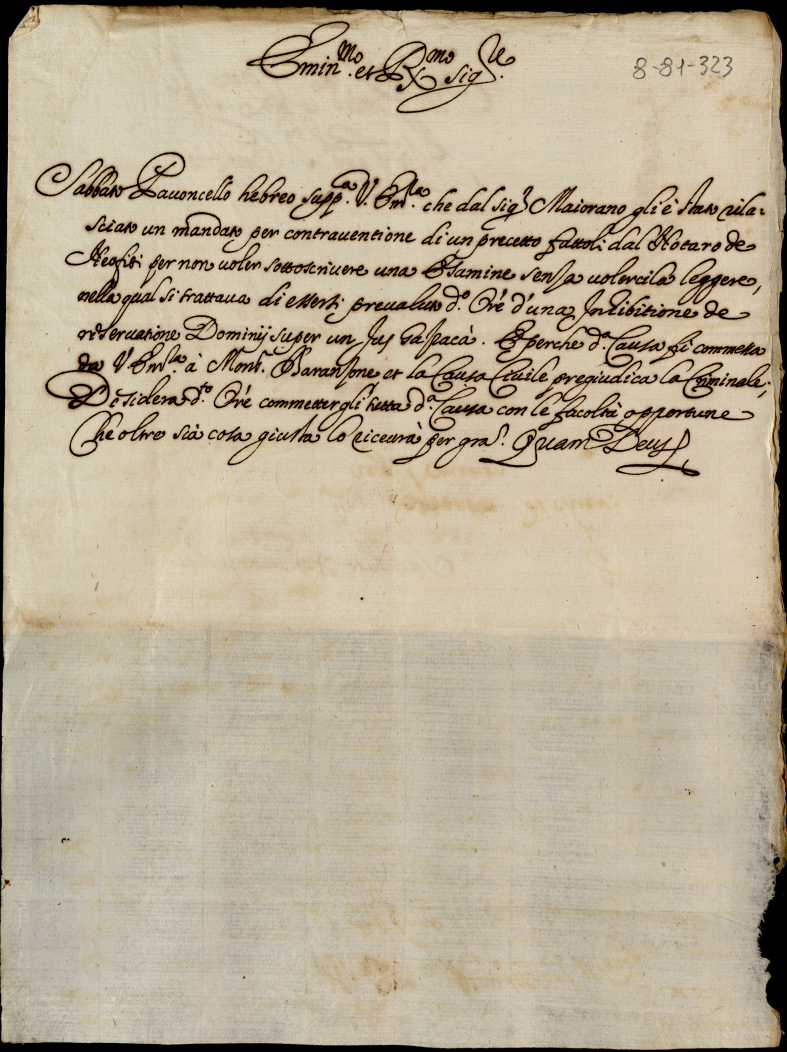 Emin.mo et R.mo Sig.re
8-81-323
Sabbato Pavoncello hebreo supp.a V. Em.za che dal Sig.r Maiorano gli è stato rila=
sciato un mandato per contraventione di un precetto fattoli dal Notaro de
Neofiti per non voler sottoscrivere una Esamine senza volercila leggere,
nella qual si trattava di essersi prevaluto d.o Ore d'una Inhibitione de
reservatione Dominij super un Jus Gazacà. E perche d.a Causa fù commessa
da V. Em.za à Mons.r Baranzone et la Causa Civile pregiudica la Criminale;
Desidera d.to Ore commettergli tutta d.a Causa con le facoltà opportune
Che oltre sià cosa giusta lo riceurà per gra.a Quam Deus